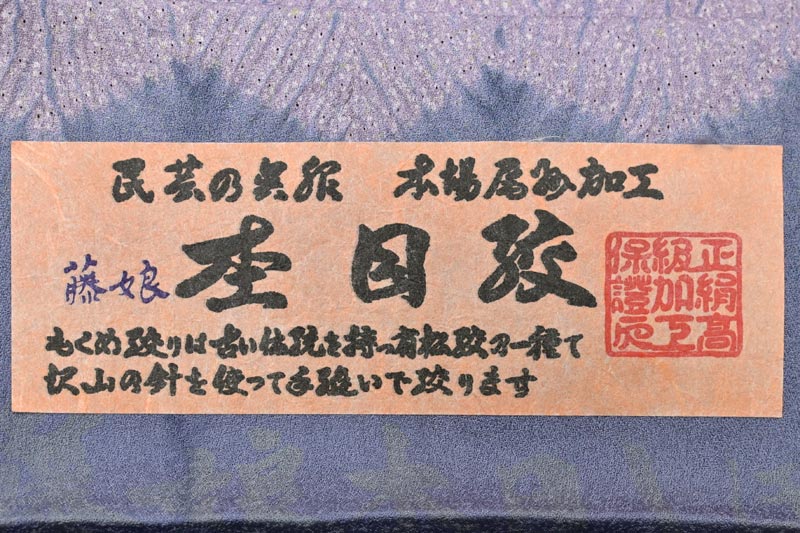 民芸の呉服 本場 加工
杢目絞
藤娘
もくめ絞りは古い伝統を持つ有松絞の一種で
沢山の針を使って手縫いで絞ります
正絹高
級加工
保證